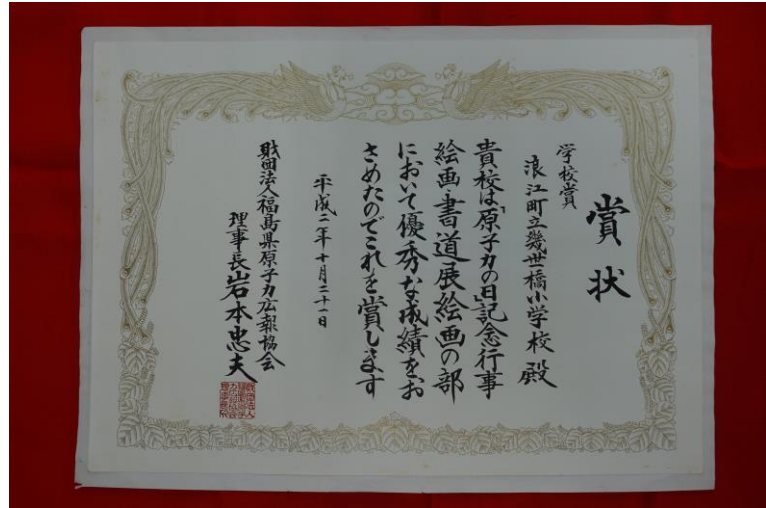 賞状
学校賞
浪江町立幾世橋小学校殿
貴校は「原子力の日」記念行事
絵画・書道展絵画の部
において優秀な成績をお
さめたのでこれを賞します
平成二年十月二十一日
財団法人福島県原子力広報協会
理事長岩本忠夫